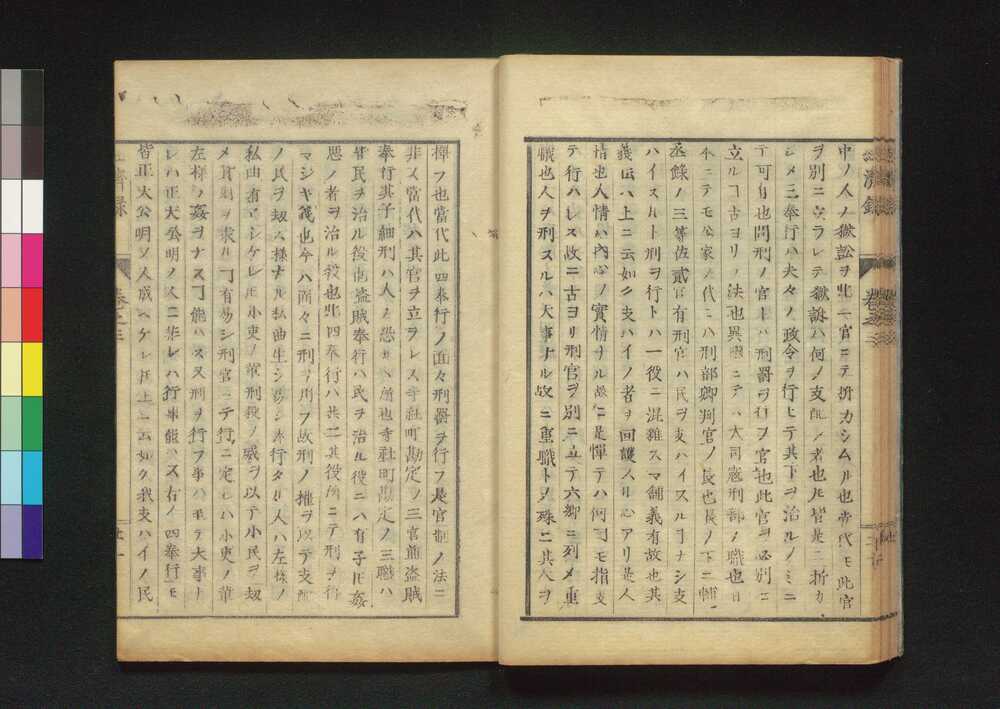 中ノ人ノ獄訟ヲ此一官ニテ折カシムル也當代モ此官
ヲ別ニ立ラレテ獄訴ハ何ノ支配ノ者也氏皆是ニ折カ
シメ三奉行ハ夫々ノ政令ヲ行ヒテ其下ヲ治ルノミニ
テ可有也問刑ノ官トハ刑罸ヲ行フ官也此官ヲ必別ニ
立ルヿ古ヨリノ法也異國ニテハ大司寇刑部ノ職也日
本ニテモ公家ノ代ニハ刑部卿判官ノ長也長ノ下ニ輔
丞錄ノ三等佐貳官有刑官ハ民ヲ支ハイスルヿナシ支
ハイスルト刑ヲ行トハ一役ニ混雜スマ舗義有故也其
義ハ上ニ云如ク支ハイノ者ヲ回護スル心アリ是人
情也人情ハ内心ノ實情ナル故ニ是憚テハ何ヿモ指支
テ行ハレス故ニ古ヨリ刑官ヲ別ニ立テ六卿ニ列メ重
職也人ヲ刑スルハ大事ナル故ニ重職トメ殊ニ其人ヲ
擇フ也當代此四奉行ノ面々刑罸ヲ行フ是官制ノ法ニ
非ス當代ハ其官ヲ立ラレス寺社町勘定ノ三官竝盗賊
奉行其子細刑ハ人ノ恐ルヽ所也寺社町勘定ノ三職ハ
皆民ヲ治ル役也盗賊奉行ハ民ヲ治ル役ニハ有子氏姦
惡ノ者ヲ治ル役也此四奉行ハ共ニ其役所ニテ刑ヲ行
マシキ義也今ハ面々ニ刑ヲ用フ故刑ノ權ヲ以テ支配
ノ民ヲ劫ス樣ナル私曲生シ易シ奉行タル人ハ左樣ノ
私曲有マシケレ氏小吏ノ輩刑殺ノ威ヲ以テ小民ヲ劫
メ貨財ヲ求ルヿ有易シ刑官ニテ行ニ定レハ小吏ノ輩
左樣ノ姦ヲナスヿ能ハス又刑ヲ行フ事ハ至テ大事ナ
レハ正大公明ノ人ニ非レハ行事能ハス右ノ四奉行モ
皆正大公明ノ人成ヘケレ氏上ニ云如ク我支ハイノ民